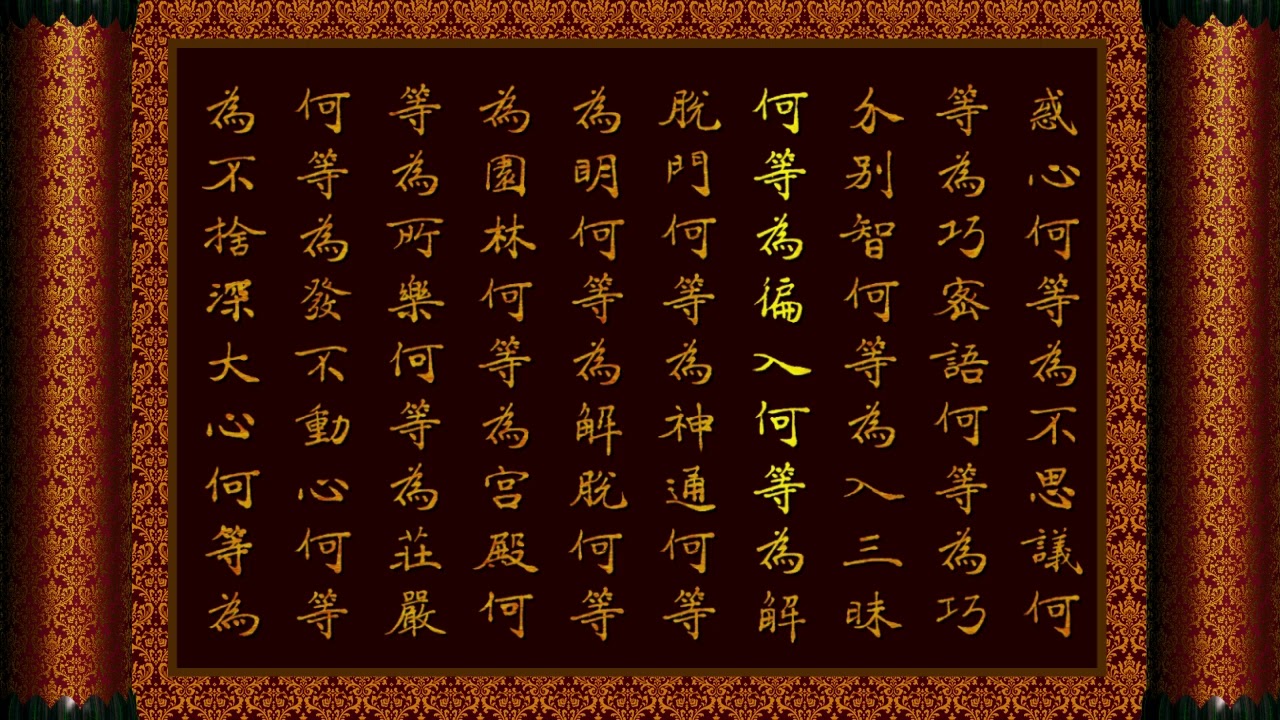 惑心何等為不思議何
等為巧密語何等為巧
分別智何等為入三昧
何等為徧入何等為解
脫門何等為神通何等
為明何等為解脫何等
為園林何等為宮殿何
等為所樂何等為莊嚴
何等為發不動心何等
為不捨深大心何等為